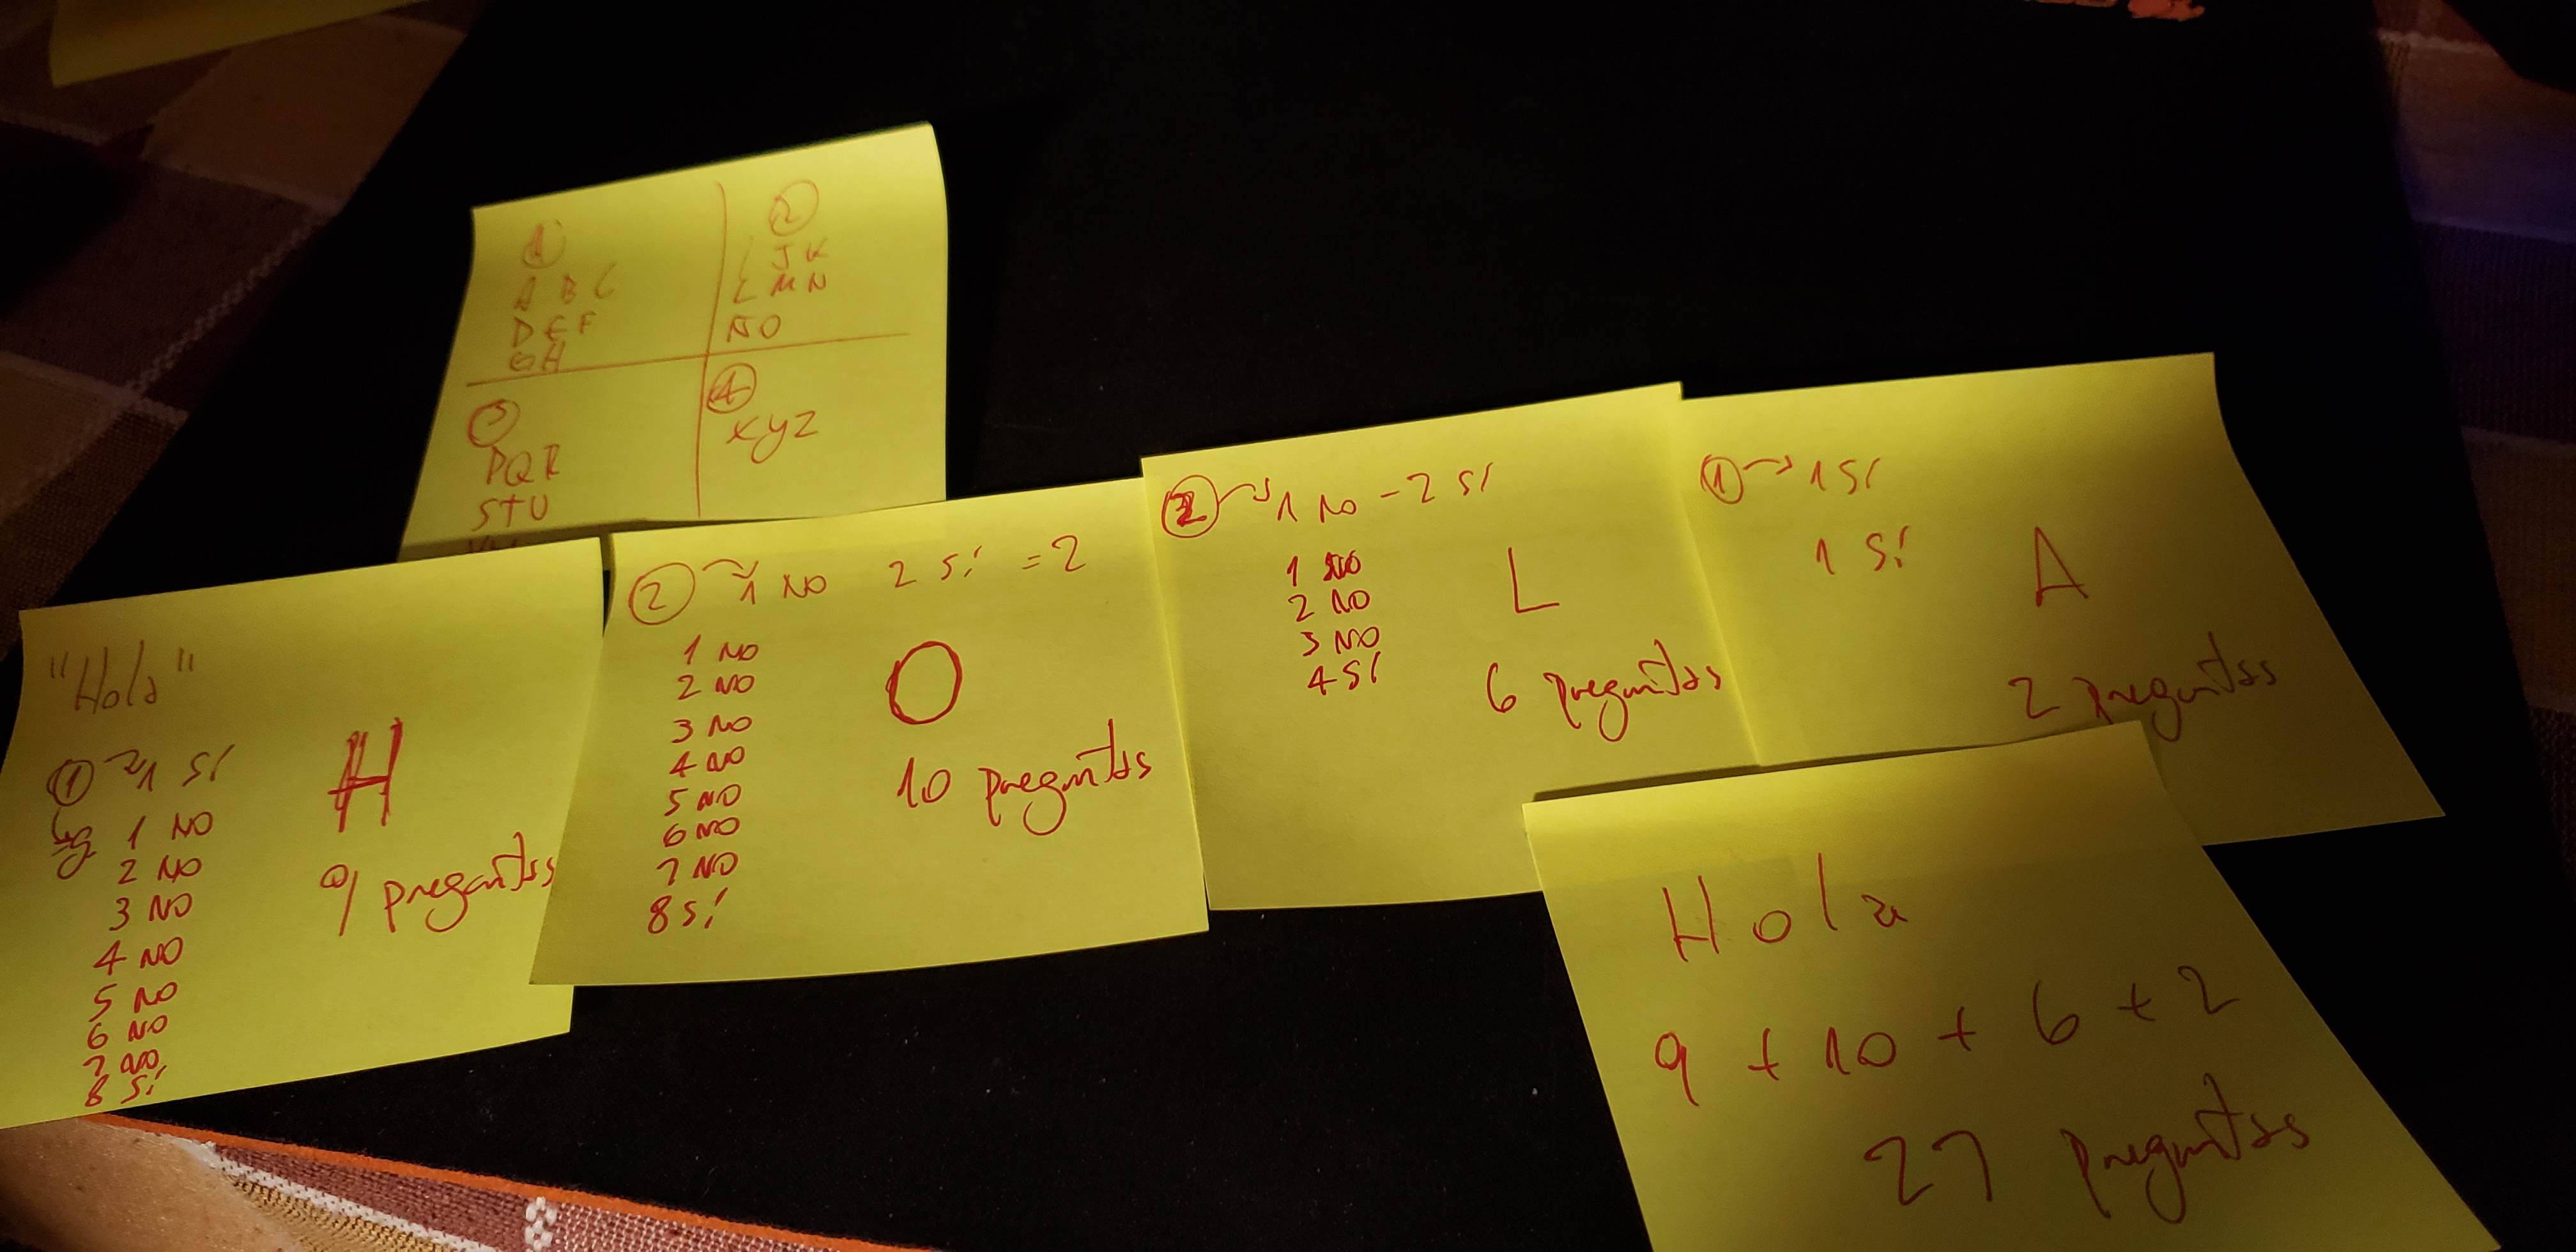 1
A B C
D E F
G H
2
I J K
L M N
Ñ O
3
P Q R
S T U
4
X Y Z
"Hola"
1 → 1 SÍ
1 NO
2 NO
3 NO
4 NO
5 NO
6 NO
7 NO
8 SÍ
H
9 preguntas
2 → 1 NO 2 SÍ = 2
1 NO
2 NO
3 NO
4 NO
5 NO
6 NO
7 NO
8 SÍ
O
10 preguntas
2 → 1 NO - 2 SÍ
1 NO
2 NO
3 NO
4 SÍ
L
6 preguntas
1 → 1 SÍ
1 SÍ
A
2 preguntas
Hola
9 + 10 + 6 + 2
27 preguntas